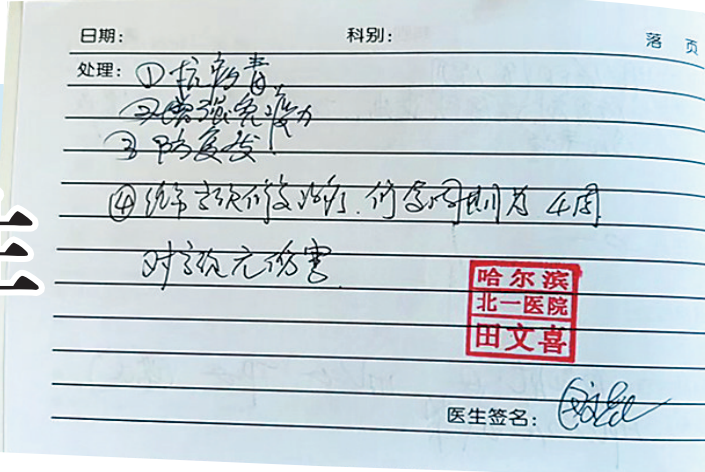 日期: 科别: 落 页
处理: ①抗病毒
②增强免疫力
③防复发
④给予宫颈修复治疗.修复周期为4周
对宫颈无伤害.
哈尔滨
北一医院
田文喜
医生签名: